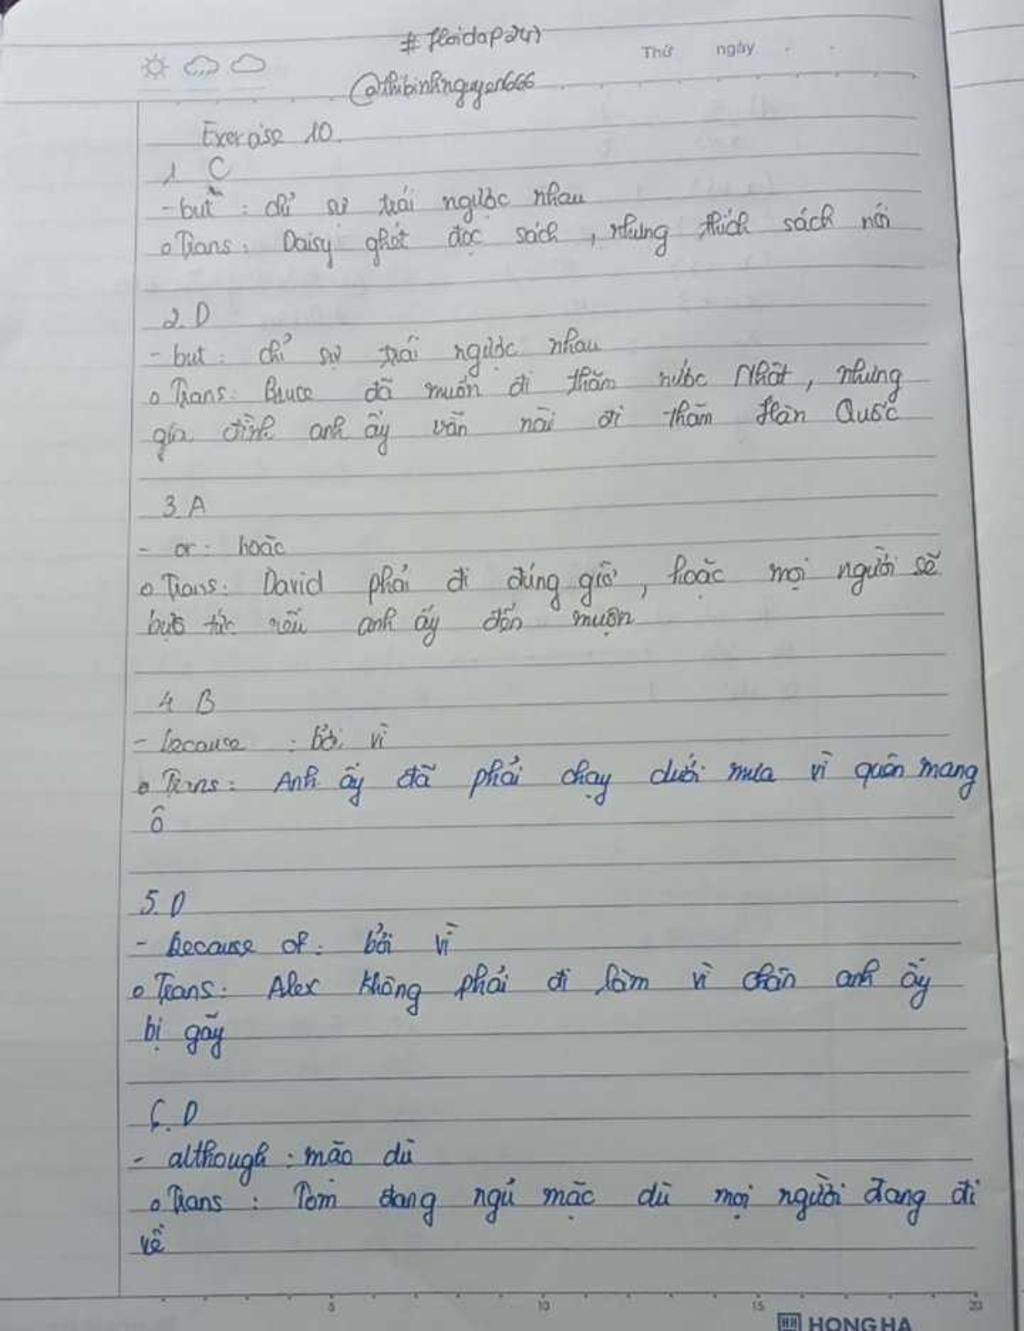 # Hoidap247
Thứ ngày
@thibinhnguyen666
Exercise 10.
1 C
- but : chỉ sự trái ngược nhau
o Trans : Daisy ghét đọc sách , nhưng thích sách nói
2. D
- but : chỉ sự trái ngược nhau
o Trans : Bruce đã muốn đi thăm nước Nhật , nhưng
gia đình anh ấy vẫn nài đi thăm Hàn Quốc
3. A
- or : hoặc
o Trans : David phải đi đúng giờ , hoặc mọi người sẽ
bực tức nếu anh ấy đến muộn
4 B
- because : bởi vì
o Trans : Anh ấy đã phải chạy dưới mưa vì quên mang
ô
5. D
- because of : bởi vì
o Trans : Alex không phải đi làm vì chân anh ấy
bị gãy
6. D
- although : mặc dù
o Trans : Tom đang ngủ mặc dù mọi người đang đi
về
5 10 15 20
HH HONG HA